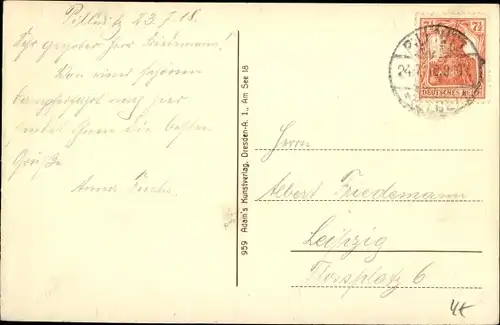 Pillnitz 23.7.18.
Sehr geehrter Herr Friedemann!
Von einer schönen
Dampferfahrt nach hier
sendet Ihnen die besten
Grüße
Anna
959 Adam's Kunstverlag, Dresden-A. 1., Am See 18
7½ 7½
DEUTSCHES
PILLNITZ
Herrn
Albert Friedemann
Leipzig
Flossplatz 6
4€